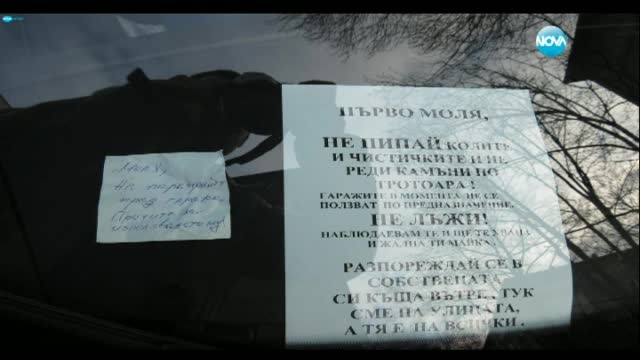 NOVA
NOVA
Моля,
Не паркирай
пред гаража.
ПЪРВО МОЛЯ,
НЕ ПИПАЙ КОЛИТЕ
И ЧИСТИЧКИТЕ И НЕ
РЕДИ КАМЪНИ ПО
ТРОТОАРА!
ГАРАЖИТЕ В МОМЕНТА НЕ СЕ
ПОЛЗВАТ ПО ПРЕДНАЗНАЧЕНИЕ,
НЕ ЛЪЖИ!
НАБЛЮДАВАМ ТЕ И ЩЕ ТЕ ХВАНА
И ЖАЛНА ТИ МАЙКА.
РАЗПОРЕЖДАЙ СЕ В
СОБСТВЕНАТА
СИ КЪЩА ВЪТРЕ, ТУК
СМЕ НА УЛИЦАТА,
А ТЯ Е НА ВСИЧКИ.